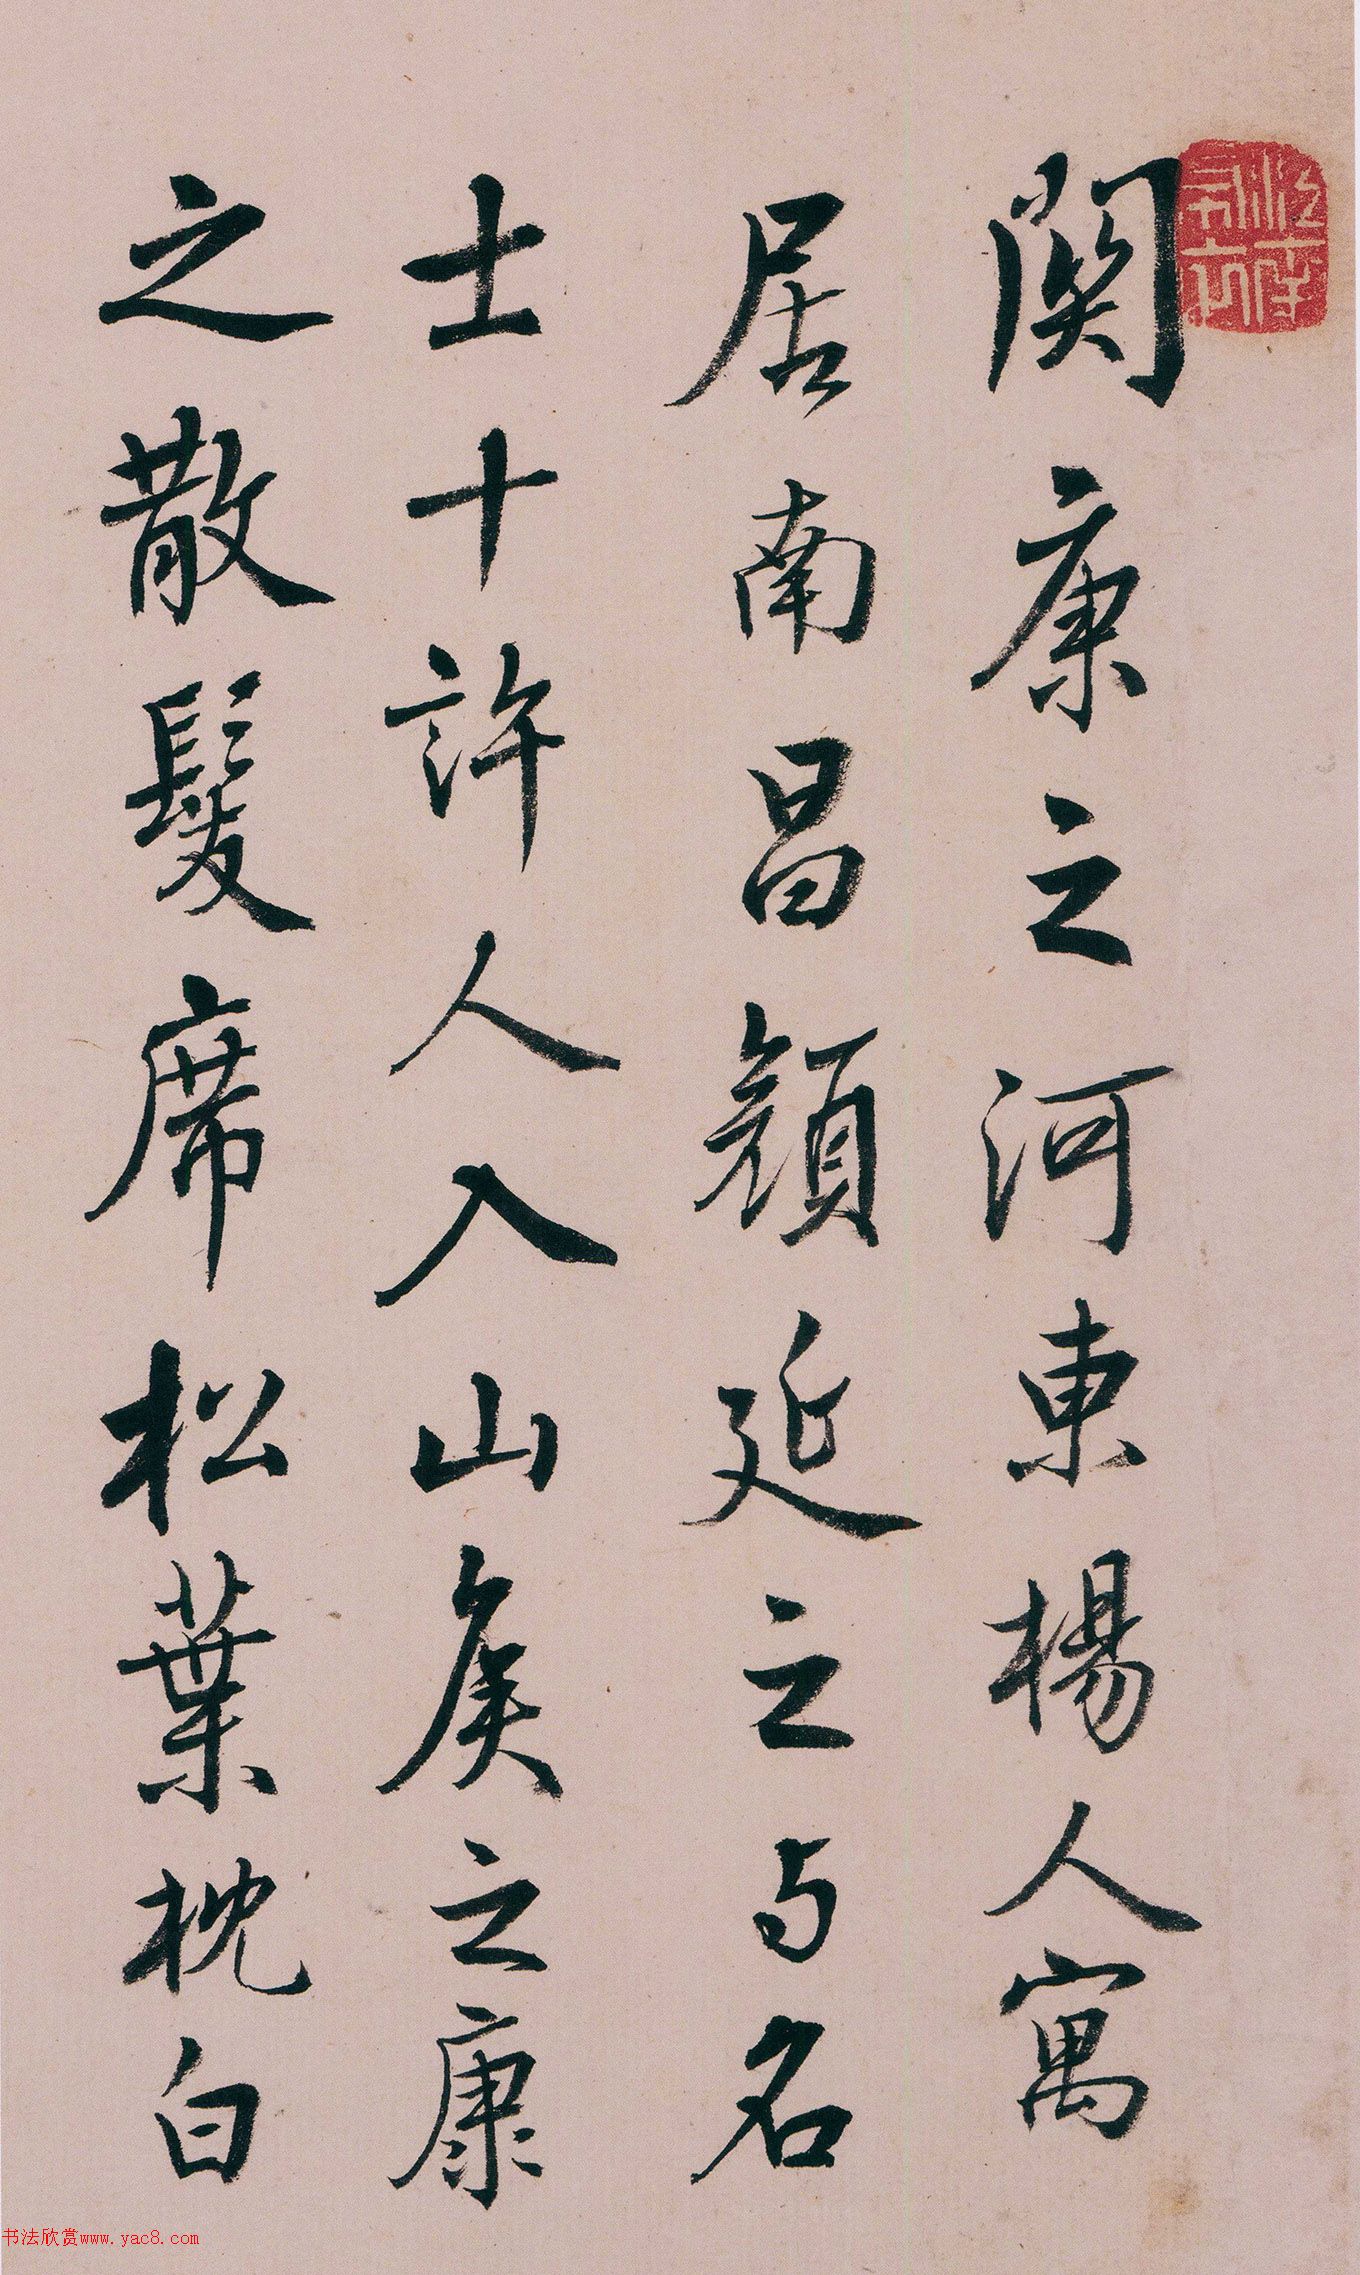 関康之河東楊人寓
居南昌顏延之与名
士十許人入山矦之康
之散髮席松葉枕白
书法欣赏www.yac8.com